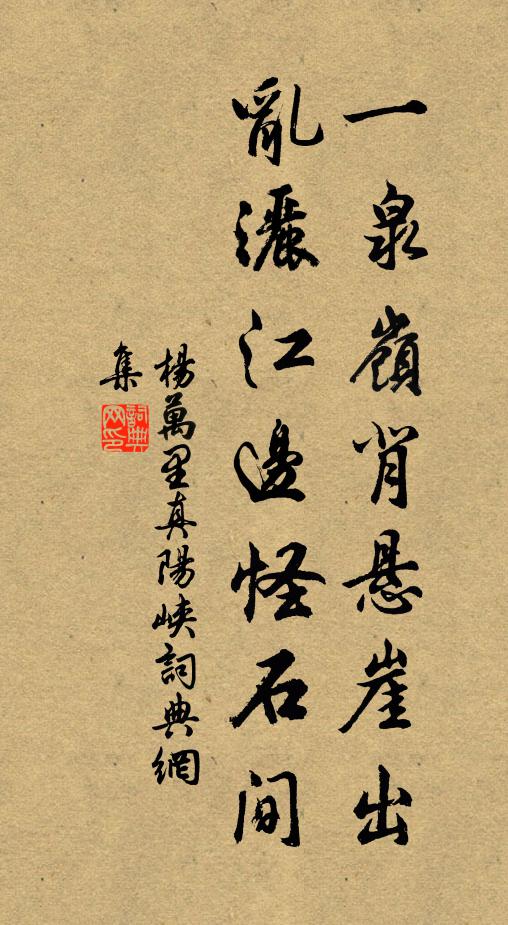 一泉嶺背悬崖出
亂灑江邊怪石间
楊萬里真陽峽詞典網
集
詞典网印